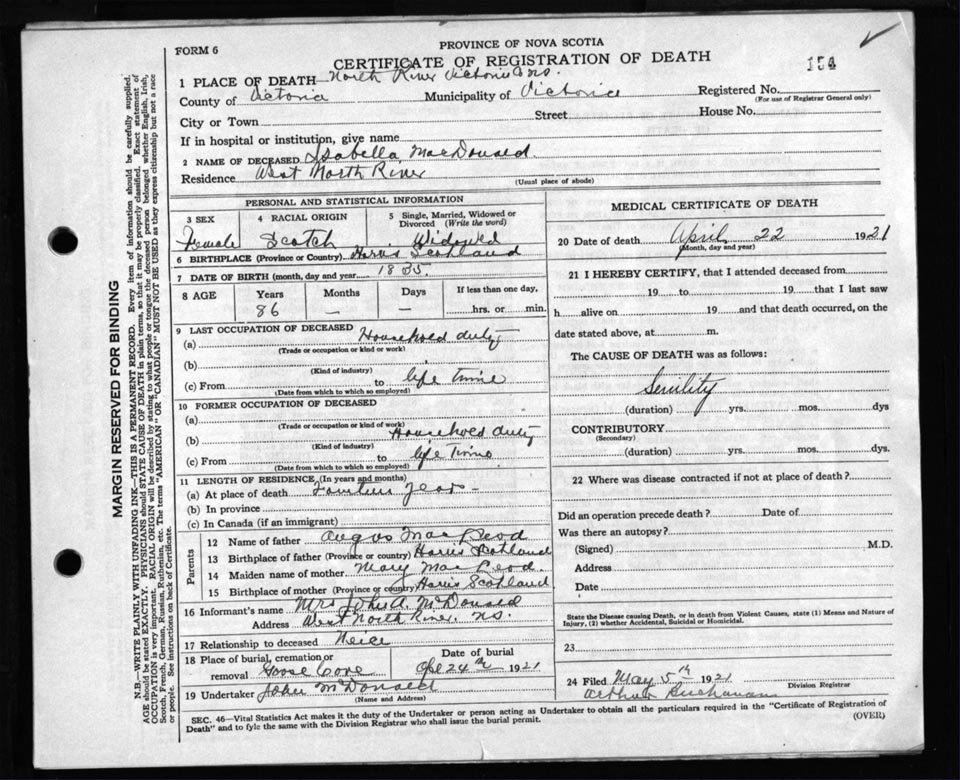 FORM 6
PROVINCE OF NOVA SCOTIA
CERTIFICATE OF REGISTRATION OF DEATH
154
1 PLACE OF DEATH North River Victoria Co NS.
County of Victoria Municipality of Victoria Registered No.
(For use of Registrar General only)
City or Town Street House No.
If in hospital or institution, give name
2 NAME OF DECEASED Isabella MacDonald
Residence West North River
(Usual place of abode)
PERSONAL AND STATISTICAL INFORMATION
3 SEX 4 RACIAL ORIGIN 5 Single, Married, Widowed or Divorced (Write the word)
Female Scotch Widowed
6 BIRTHPLACE (Province or Country) Harris Scotland
7 DATE OF BIRTH (month, day and year) 1835.
8 AGE Years Months Days If less than one day,
86 — — hrs. or min.
9 LAST OCCUPATION OF DECEASED
(a) Household duty
(Trade or occupation or kind or work)
(b)
(Kind of industry)
(c) From to life time
(Date from which to which so employed)
10 FORMER OCCUPATION OF DECEASED
(a)
(Trade or occupation or kind of work)
(b) Household duty
(Kind of industry)
(c) From to life time
(Date from which to which so employed)
11 LENGTH OF RESIDENCE (In years and months)
(a) At place of death years
(b) In province
(c) In Canada (if an immigrant)
Parents
12 Name of father Angus MacLeod
13 Birthplace of father (Province or country) Harris Scotland
14 Maiden name of mother Mary MacLeod
15 Birthplace of mother (Province or country) Harris Scotland
16 Informant's name Mrs John A McDonald
Address West North River. NS.
17 Relationship to deceased Neice
18 Place of burial, cremation or removal Goose Cove Date of burial Apl 24th 1921
19 Undertaker John McDonald
(Name and Address)
MEDICAL CERTIFICATE OF DEATH
20 Date of death April 22 1921
(Month, day and year)
21 I HEREBY CERTIFY, that I attended deceased from
19 to 19 that I last saw
h alive on 19 and that death occurred, on the
date stated above, at m.
The CAUSE OF DEATH was as follows:
Senility
(duration) yrs. mos. dys
CONTRIBUTORY
(Secondary)
(duration) yrs. mos. dys
22 Where was disease contracted if not at place of death?
Did an operation precede death? Date of
Was there an autopsy?
(Signed) M.D.
Address
Date
State the Disease causing Death, or in death from Violent Causes, state (1) Means and Nature of
Injury, (2) whether Accidental, Suicidal or Homicidal.
23
24 Filed May 5th 1921
Arthur Buchanan Division Registrar
SEC. 46—Vital Statistics Act makes it the duty of the Undertaker or person acting as Undertaker to obtain all the particulars required in the "Certificate of Registration of
Death" and to fyle the same with the Division Registrar who shall issue the burial permit.
(OVER)
MARGIN RESERVED FOR BINDING
N.B.—WRITE PLAINLY WITH UNFADING INK—THIS IS A PERMANENT RECORD. Every item of information should be carefully supplied.
AGE should be stated EXACTLY. PHYSICIANS should STATE CAUSE OF DEATH in plain terms, so that it may be properly classified. Exact statement of
OCCUPATION is very important. RACIAL ORIGIN will be described by stating to what people or tongue the deceased person belonged whether English, Irish,
Scotch, French, German, Russian, Ruthenian, etc. The terms "AMERICAN" OR "CANADIAN" MUST NOT BE USED as they express citizenship but not a race
or people. See instructions on back of Certificate.